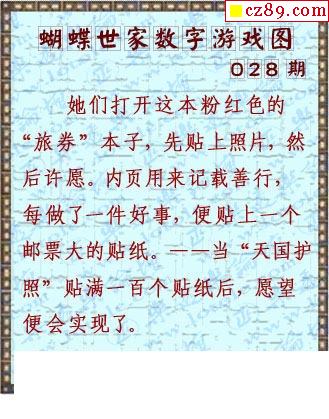 cz89.com
蝴蝶世家数字游戏图
028期
她们打开这本粉红色的
“旅券”本子，先贴上照片，然
后许愿。内页用来记载善行，
每做了一件好事，便贴上一个
邮票大的贴纸。——当“天国护
照”贴满一百个贴纸后，愿望
便会实现了。